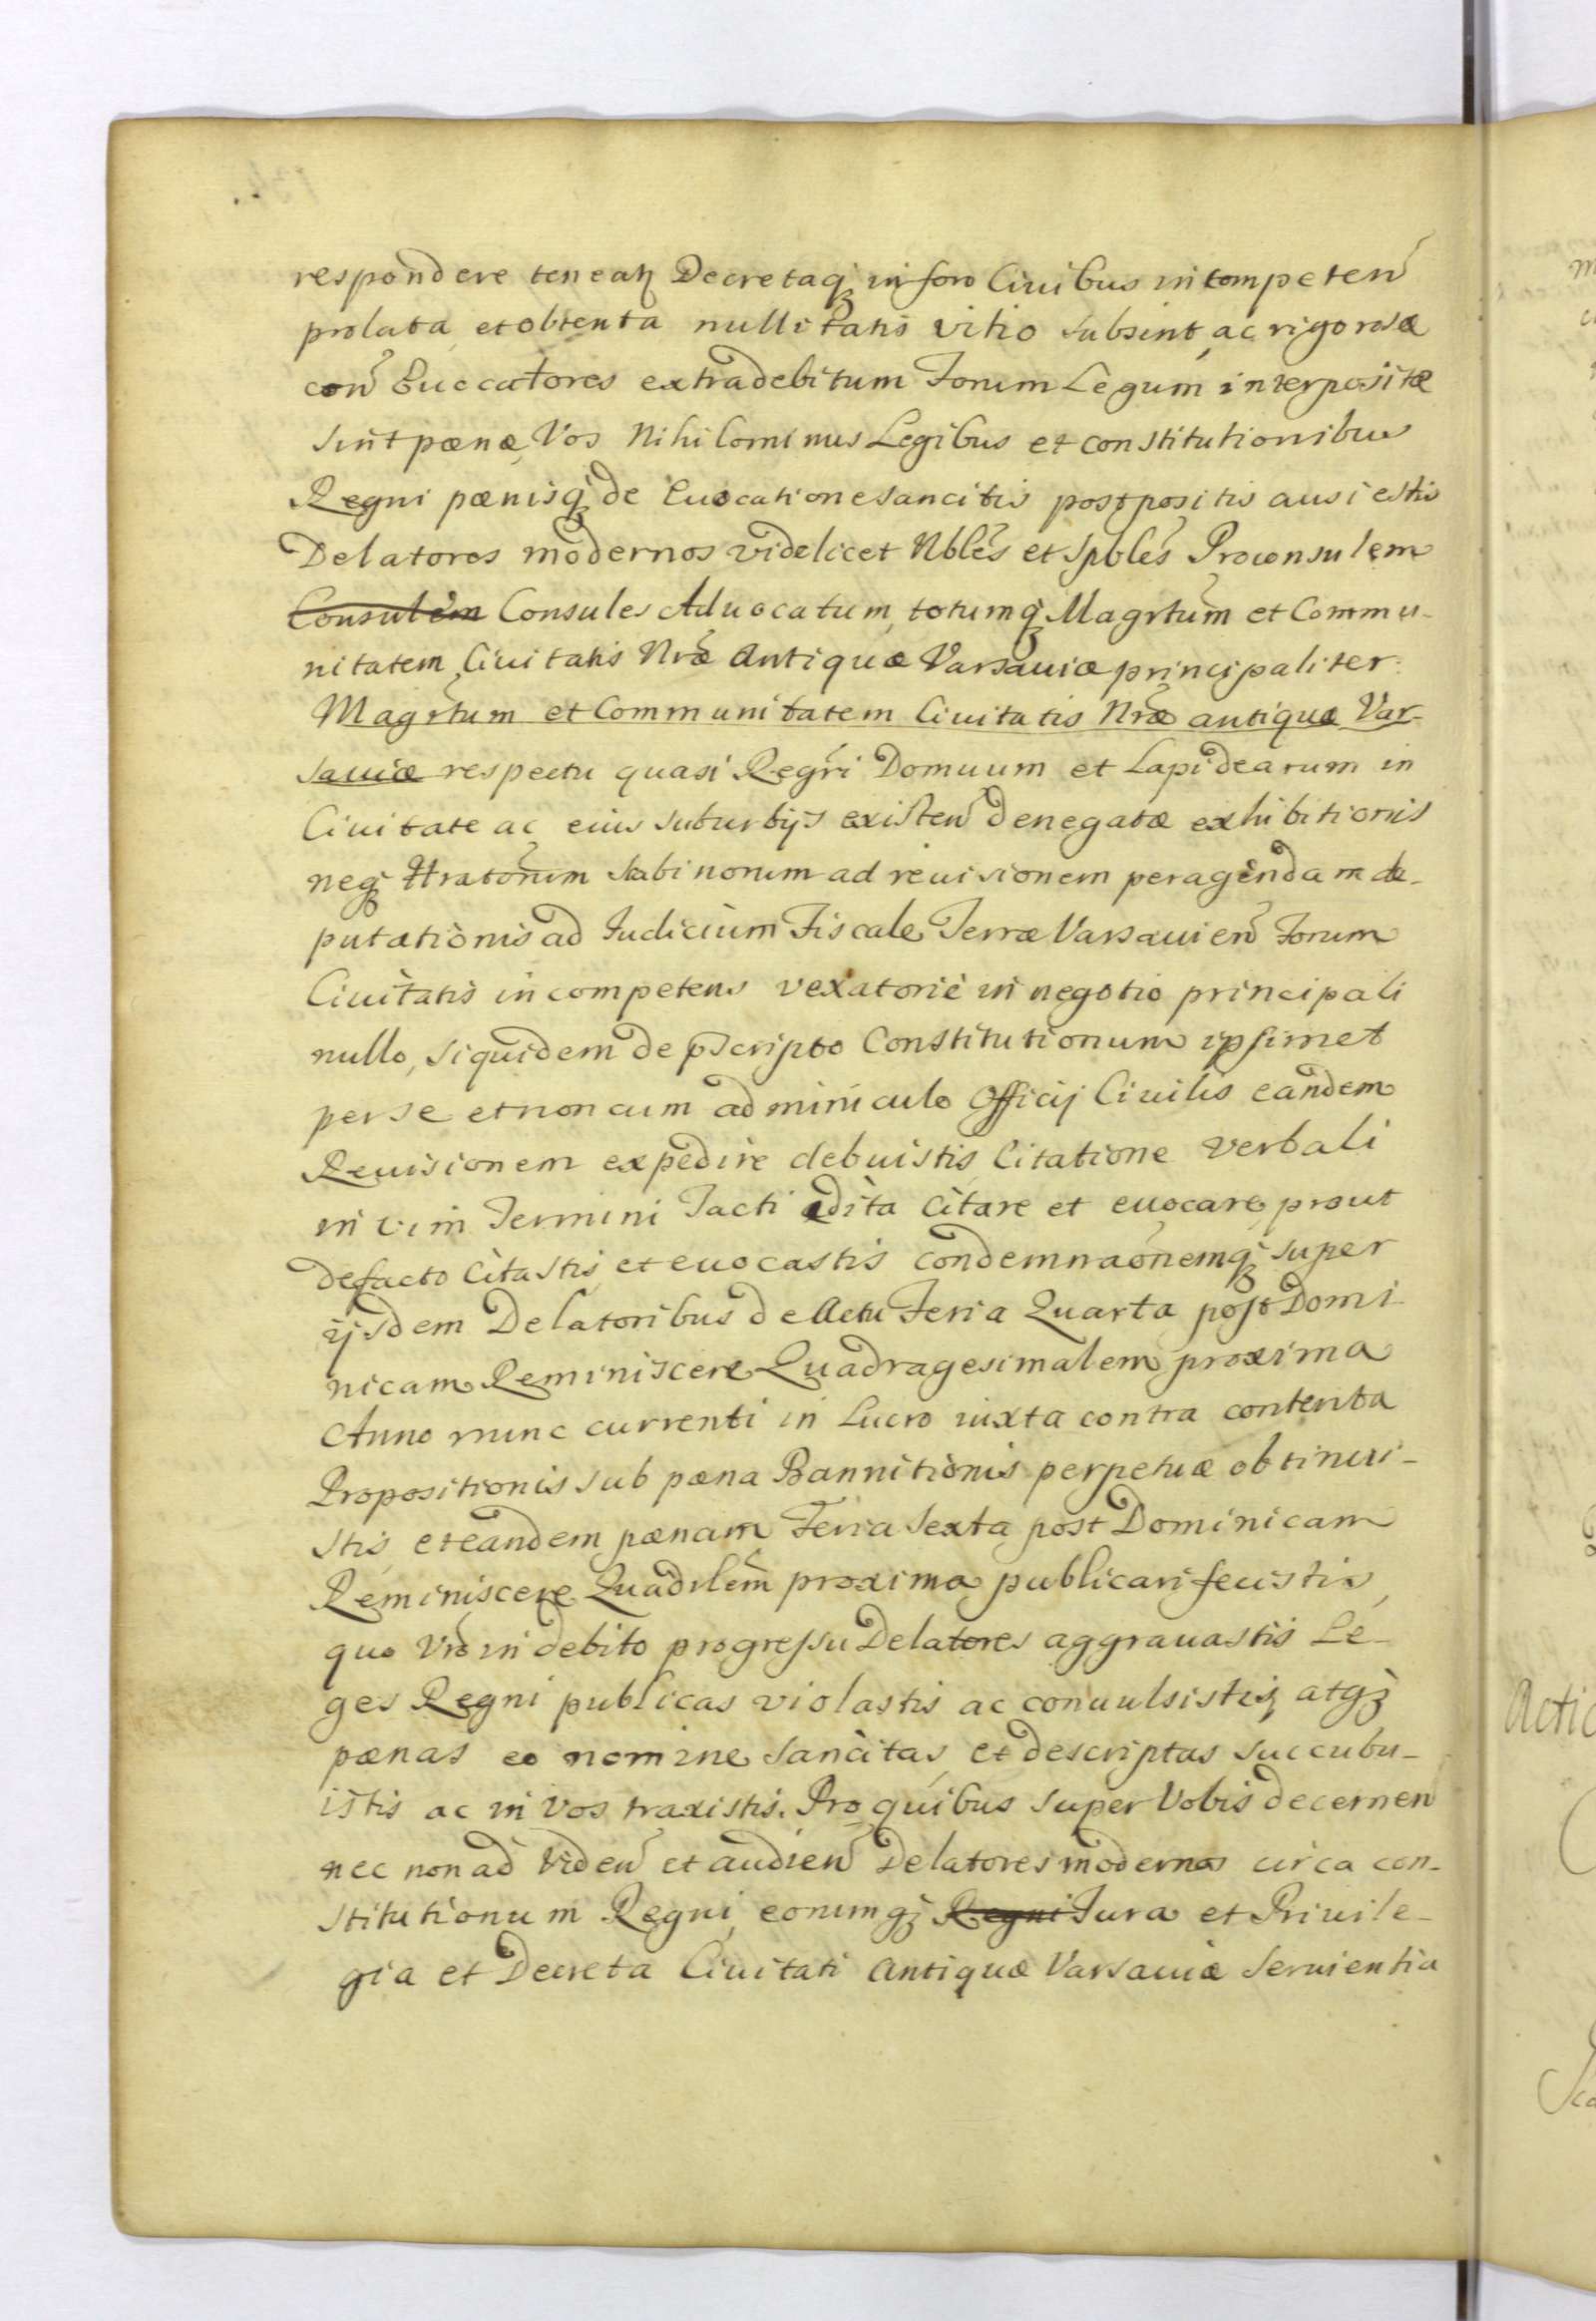 respondere teneatz Decretaq₃ in foro Ciuibus incompeteñ
prolata et obtenta nullitatis vitio subsint, ac rigorosæ
coñ Euocatores extra debitum Forum Legum interpositæ
sint pœnæ, Vos nihilominus Legibus et constitutionibus
Regni pœnisq₃ de Euocatione sancitis postpositis ausi estis
Delatores modernos videlicet Nbles et Spbles Proconsulem
Consulem Consules Aduocatum, totumq₃ Magrtum et Commu-
nitatem Ciuitatis Nræ Antiquæ Varsauiæ principaliter
Magrtum et Communitatem Ciuitatis Nræ antiquæ Var-
sauiæ respectu quasi Regri Domuum et Lapidearum in
Ciuitate ac eius suburbijs existeñ denegatæ exhibitionis
neq₃ Scabinorum ad reuisionem peragendam de-
putationis ad Iudicium Fiscale Terræ Varsauieñ Forum
Ciuitatis incompetens vexatorie in negotio principali
nullo, siquidem de pscripto Constitutionum ipsimet
per se et non cum adminiculo Officij Ciuilis eandem
Reuisionem expedire debuistis Citatione verbali
in vim Termini Tacti edita citare et euocare, prout
de facto citastis et euocastis condemnaonemq₃ super
ijsdem Delatoribus de Actu Feria Quarta post Domi-
nicam Reminiscere Quadragesimalem proxima
Anno nunc currenti in Lucro iuxta contra contenta
Propositionis sub pœna Bannitionis perpetuæ obtinui-
stis et eandem pœnam Feria Sexta post Dominicam
Reminiscere Quadrlem proxima publicari fecistis,
quo Vro indebito progressu Delatores aggrauastis Le-
ges Regni publicas violastis ac conuulsistis, atq₃
pœnas eo nomine sancitas et descriptas succubu-
istis ac in vos traxistis. Pro quibus super Vobis decerneñ
nec non ad Videñ et audieñ Delatores modernos circa con-
stitutionum Regni, eorumq₃ Regni Iura et Priuile-
gia et Decreta Ciuitati Antiquæ Varsauiæ seruientia